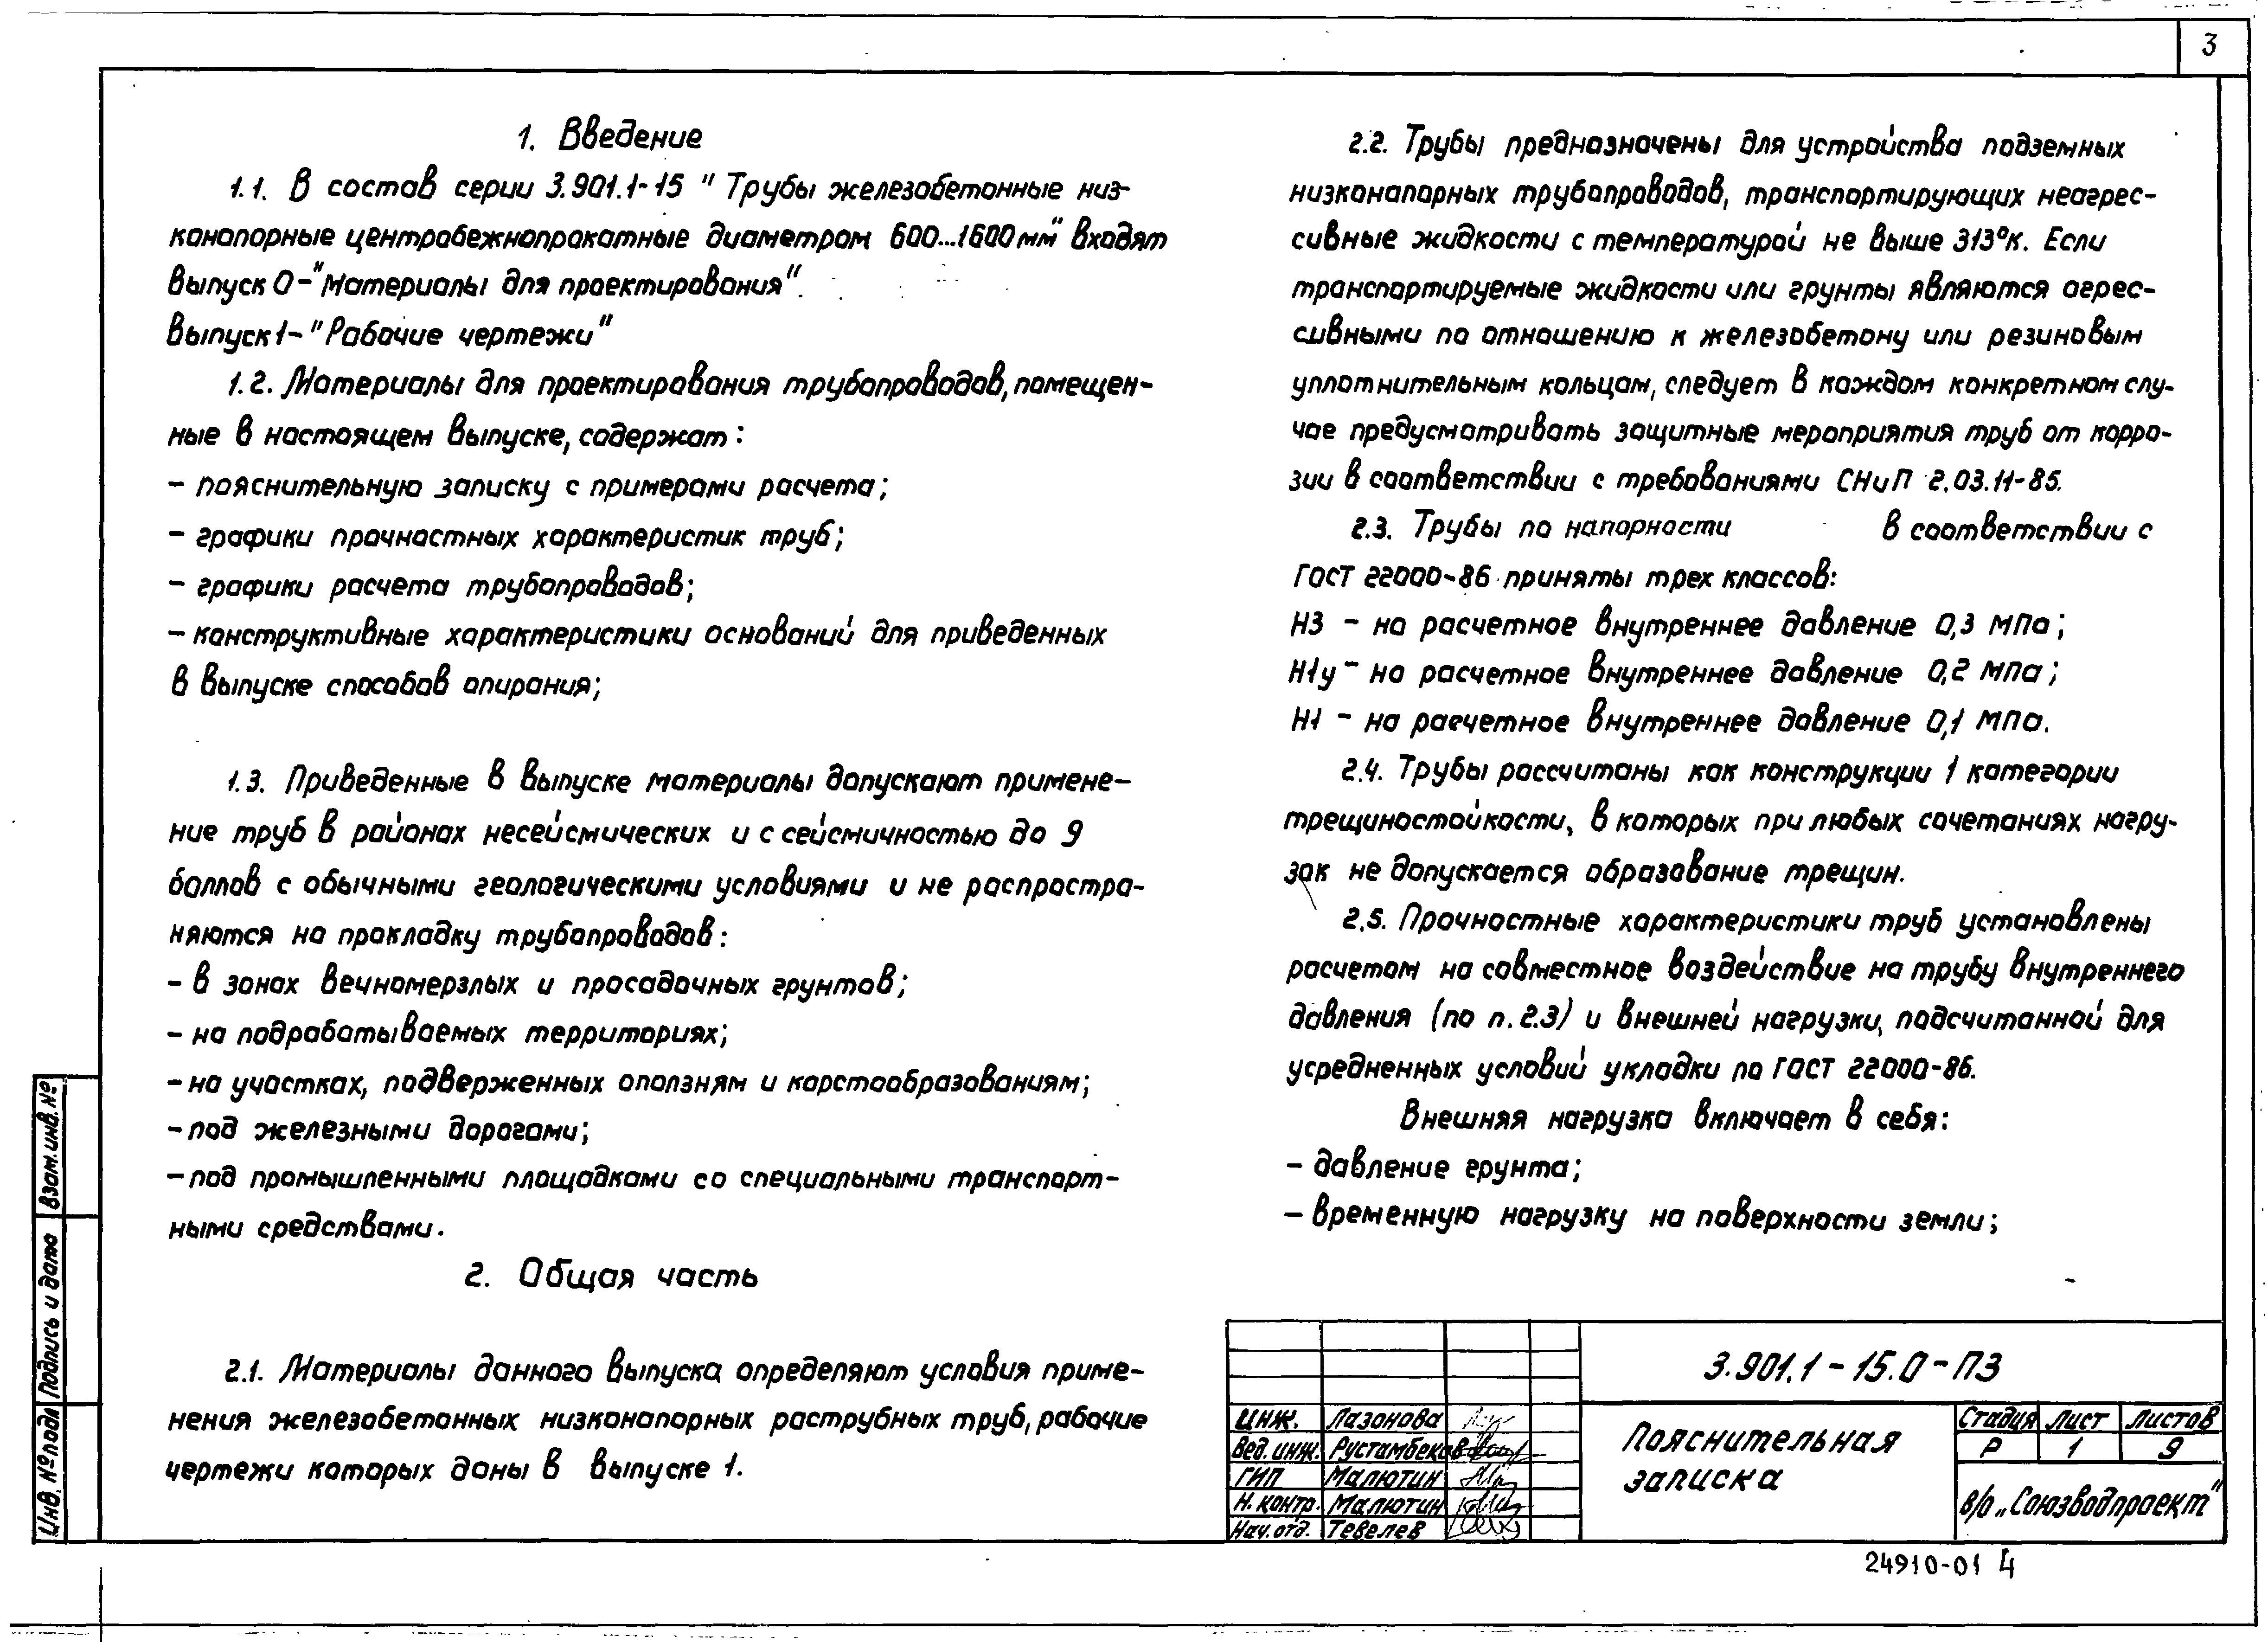 3
1. Введение
1.1. В состав серии 3.901.1-15 "Трубы железобетонные низ-
конапорные центробежнопрокатные диаметром 600...1600мм" входят
выпуск 0-"Материалы для проектирования".
Выпуск 1-"Рабочие чертежи"
1.2. Материалы для проектирования трубопроводов, помещен-
ные в настоящем выпуске, содержат:
- пояснительную записку с примерами расчета;
- графики прочностных характеристик труб;
- графики расчета трубопроводов;
- конструктивные характеристики оснований для приведенных
в выпуске способов опирания;
1.3. Приведенные в выпуске материалы допускают примене-
ние труб в районах несейсмических и с сейсмичностью до 9
баллов с обычными геологическими условиями и не распростра-
няются на прокладку трубопроводов:
- в зонах вечномерзлых и просадочных грунтов;
- на подрабатываемых территориях;
- на участках, подверженных оползням и карстообразованиям;
- под железными дорогами;
- под промышленными площадками со специальными транспорт-
ными средствами.
2. Общая часть
2.1. Материалы данного выпуска определяют условия приме-
нения железобетонных низконапорных раструбных труб, рабочие
чертежи которых даны в выпуске 1.
2.2. Трубы предназначены для устройства подземных
низконапорных трубопроводов, транспортирующих неагрес-
сивные жидкости с температурой не выше 313°К. Если
транспортируемые жидкости или грунты являются агрес-
сивными по отношению к железобетону или резиновым
уплотнительным кольцам, следует в каждом конкретном слу-
чае предусматривать защитные мероприятия труб от корро-
зии в соответствии с требованиями СНиП 2.03.11-85.
2.3. Трубы по напорности в соответствии с
ГОСТ 22000-86 приняты трех классов:
Н3 - на расчетное внутреннее давление 0,3 МПа;
Н1у - на расчетное внутреннее давление 0,2 МПа;
Н1 - на расчетное внутреннее давление 0,1 МПа.
2.4. Трубы рассчитаны как конструкции 1 категории
трещиностойкости, в которых при любых сочетаниях нагру-
зок не допускается образование трещин.
2.5. Прочностные характеристики труб установлены
расчетом на совместное воздействие на трубу внутреннего
давления (по п. 2.3) и внешней нагрузки, подсчитанной для
усредненных условий укладки по ГОСТ 22000-86.
Внешняя нагрузка включает в себя:
- давление грунта;
- временную нагрузку на поверхности земли;
Взам. инв. №
Подпись и дата
Инв. № подл
3.901.1-15.0-ПЗ
Инж. Лазонова
Вед. инж. Рустамбеков
ГИП Малютин
Н. контр. Малютин
Нач. отд. Тевелев
Пояснительная
записка
Стадия Лист Листов
Р 1 9
в/о „Союзводпроект"
24910-01 4